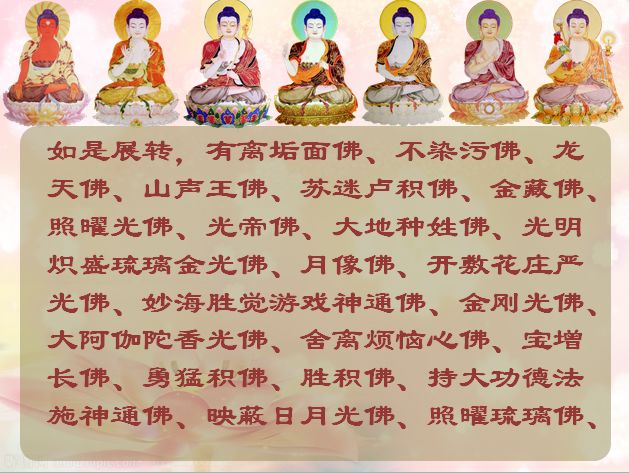 如是展转，有离垢面佛、不染污佛、龙
天佛、山声王佛、苏迷卢积佛、金藏佛、
照曜光佛、光帝佛、大地种姓佛、光明
炽盛琉璃金光佛、月像佛、开敷花庄严
光佛、妙海胜觉游戏神通佛、金刚光佛、
大阿伽陀香光佛、舍离烦恼心佛、宝增
长佛、勇猛积佛、胜积佛、持大功德法
施神通佛、映蔽日月光佛、照曜琉璃佛、